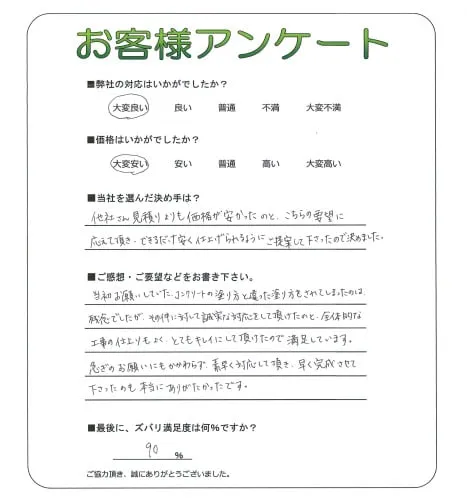 お客様アンケート
■弊社の対応はいかがでしたか？
大変良い 良い 普通 不満 大変不満
■価格はいかがでしたか？
大変安い 安い 普通 高い 大変高い
■当社を選んだ決め手は？
他社さん見積りよりも価格が安かったのと、こちらの要望に
応えて頂き、できるだけ安く仕上げられるようにご提案して下さったので決めました。
■ご感想・ご要望などをお書き下さい。
当初お願いしていた、コンクリートの塗り方と違った塗り方をされてしまったのは、
残念でしたが、その件に対して誠実な対応をして頂けたのと、全体的な
工事の仕上りもよく、とてもキレイにして頂けたので満足しています。
急ぎのお願いにもかかわらず、素早く対応して頂き、早く完成させて
下さったのも本当にありがたかったです。
■最後に、ズバリ満足度は何％ですか？
90 ％
ご協力頂き、誠にありがとうございました。